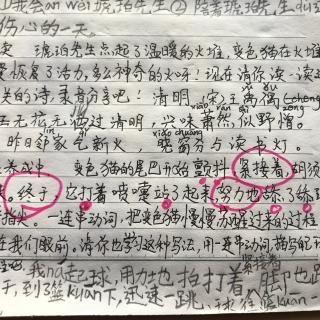 ①我会ān wèi琥珀先生②陪着琥珀先生
伤心的一天。
琥珀先生点起了温暖的火堆，变色猫在火堆
恢复了活力,多么神奇的火呀！现在请你读一读
关的诗,录音分享吧！清明 (宋)王禹偁(chēng
无花无酒过清明,兴味萧然似野僧。
昨日邻家乞新火 晓窗分与读书灯。
变色猫的尾巴开始颤抖,紧接着胡须
。终于 它打着喷嚏站了起来,努力地舔了舔
指尖。一连串动词,把变色猫慢慢苏醒过来的过程
在我们眼前。请你也学习这种写法,用一连串动词,描写
紧接着
我ná起球,用力地拍打着 脚也
于,到了篮kuān下,迅速一跳,球往篮kuān一